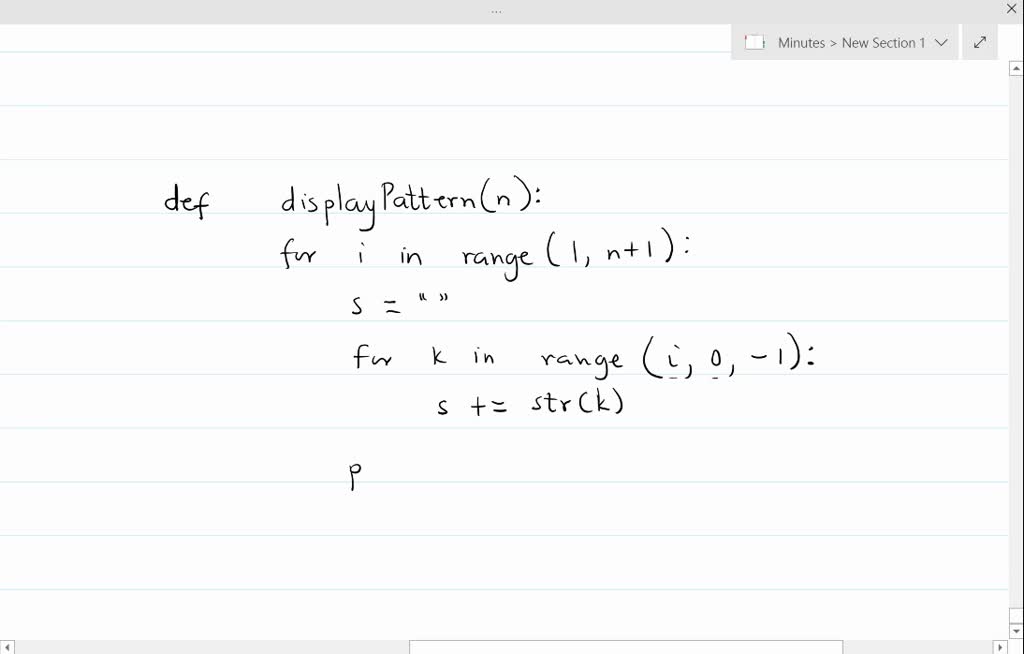 ...
Minutes > New Section 1
def displayPattern(n):
for i in range (1, n+1):
s = “ ”
for k in range (i, 0, -1):
s += str(k)
p